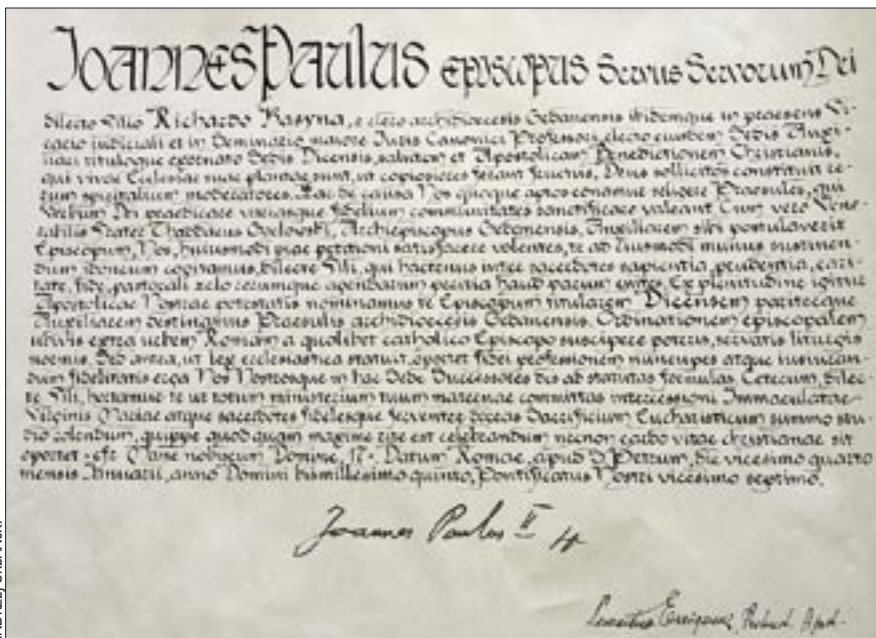 JOANNES PAULUS EPISCOPUS Servus Servorum Dei
dilecto Filio Richardo Kasyna, e clero archidioecesis Gedanensis ibidemque in praesens Vi-
cario judiciali et in Seminario maiore Juris Canonici Professori, electo eiusdem Sedis Auxi-
liari tituloque exornato Sedis Dicensis, salutem et Apostolicam Benedictionem. Christianis,
qui vivae Ecclesiae nunc plantae sunt, ut copiosiores ferant fructus, Deus sollicitos constituit re-
rum spiritalium moderatores. Hac de causa Nos quoque aptos conamur seligere Praesules, qui
Verbum Dei praedicare variasque fidelium communitates sanctificare valeant. Cum vero Vene-
rabilis Frater Thaddaeus Goclowski, Archiepiscopus Gedanensis, Auxiliarem sibi postulaverit
Episcopum, Nos, huiusmodi piae petitioni satisfacere volentes, te ad eiusmodi munus sustinen-
dum idoneum cogitamus, dilecte Fili, qui hactenus inter sacerdotes sapientia, prudentia, cari-
tate, fide, pastorali zelo rerumque agendarum peritia haud parum enites. Ex plenitudine igitur
Apostolicae Nostrae potestatis nominamus te Episcopum titularem Dicensem pariterque
Auxiliarem destinamus Praesulis archidioecesis Gedanensis. Ordinationem episcopalem
ubivis extra urbem Romam a quolibet catholico Episcopo suscipere poteris, servatis liturgicis
normis. Sed antea, ut lex ecclesiastica statuit, oportet fidei professionem nuncupes atque iusiuran-
dum fidelitatis erga Nos Nostrosque in hac Sede Successores des ad statutas formulas. Ceterum, dilec-
te Fili, hortamur te ut totum ministerium tuum maternae committas intercessioni Immaculatae
Virginis Mariae atque sacerdotes fidelesque frequenter doceas Sacrificium Eucharisticum summo stu-
dio colendum, quippe quod quam maxime rite est celebrandum necnon cardo vitae christianae sit
oportet - cfr. Mane nobiscum Domine, 17-. Datum Romae, apud S. Petrum, die vicesimo quarto
mensis Ianuarii, anno Domini bismillesimo quinto, Pontificatus Nostri vicesimo septimo.
Joannes Paulus II